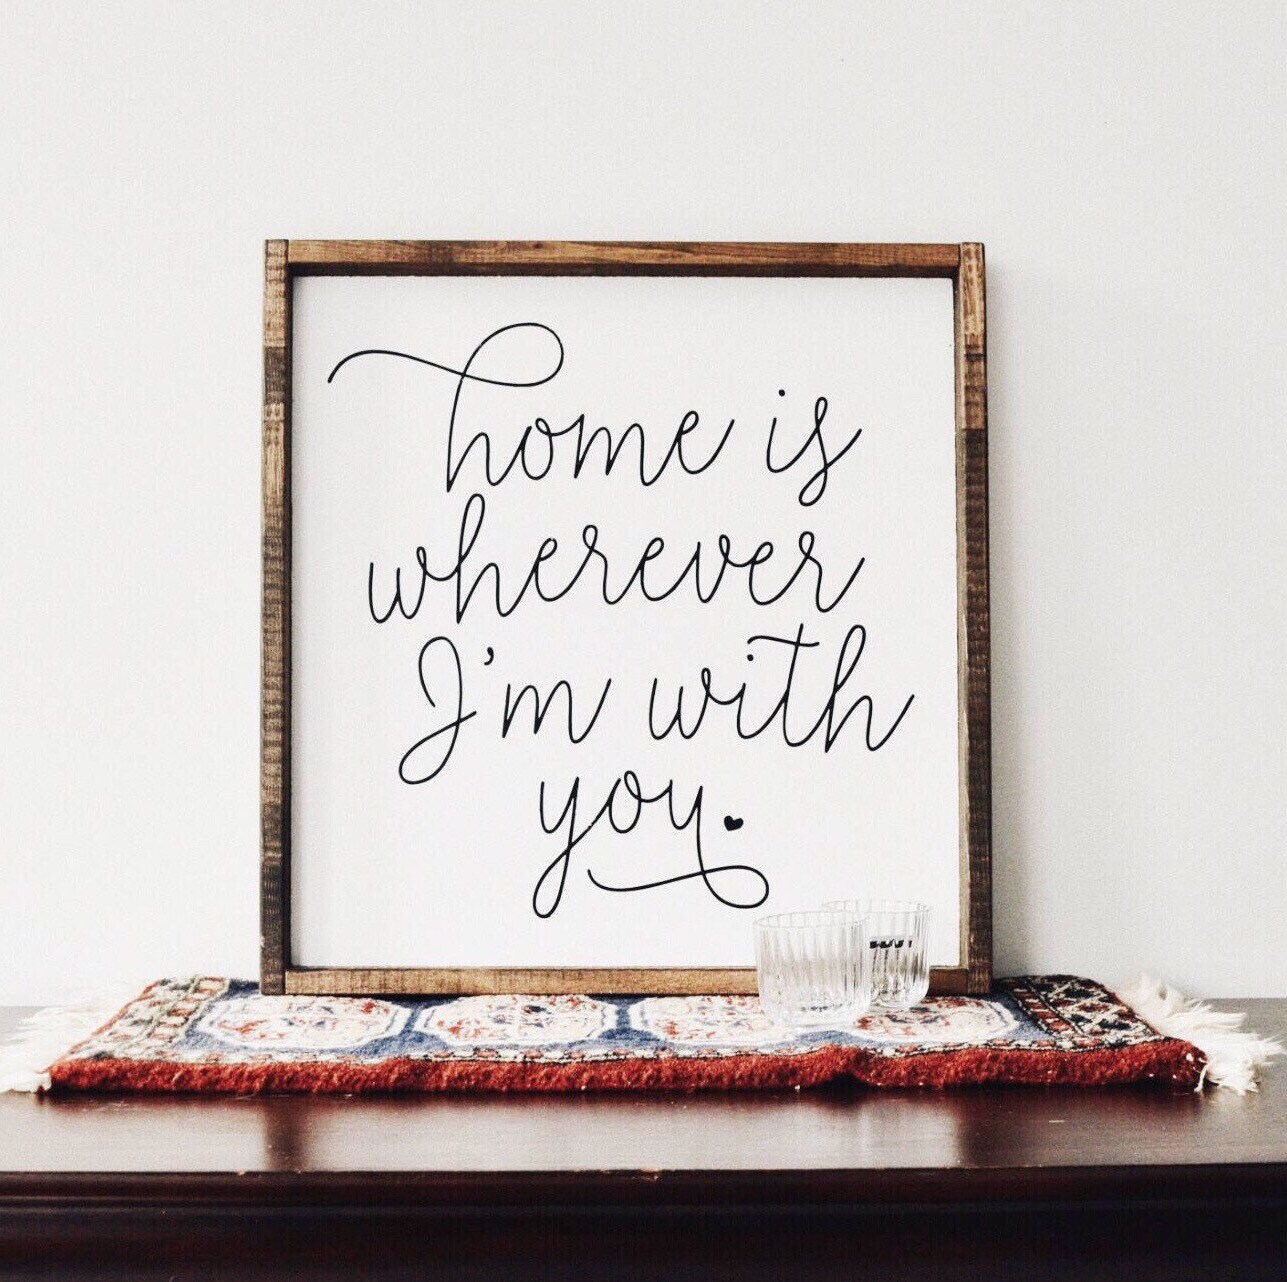 home is
wherever
I'm with
you.